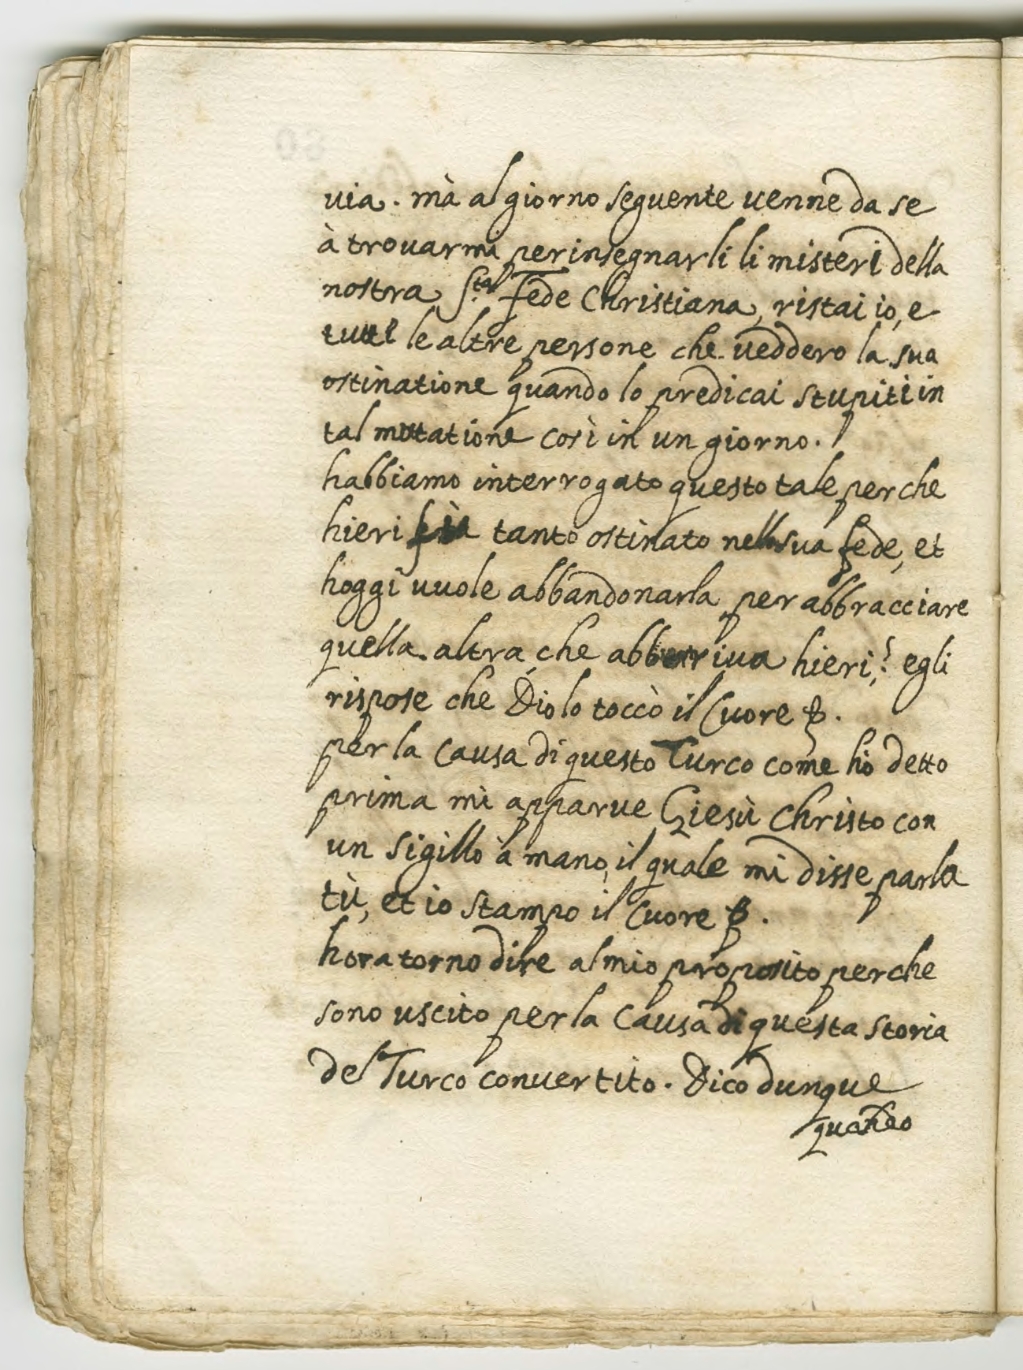 via. mà al giorno seguente venne da se
à trovarmi per insegnarli li misteri della
nostra Sta Fede Christiana, ristai io, e
tutte le altre persone che veddero la sua
ostinatione quando lo predicai stupiti in
tal mutatione così in un giorno.
habbiamo interrogato questo tale perche
hieri fù tanto ostinato nella sua fede, et
hoggi vuole abbandonarla per abbracciare
quella altra che abborriva hieri,? egli
rispose che Dio lo toccò il Cuore &.
per la Causa di questo Turco come hò detto
prima mi apparve Giesù Christo con
un Sigillo à mano, il quale mi disse parla
tù, et io stampo il Cuore &.
hora torno dire al mio proposito perche
sono uscito per la Causa di questa storia
del Turco convertito. Dico dunque
quando